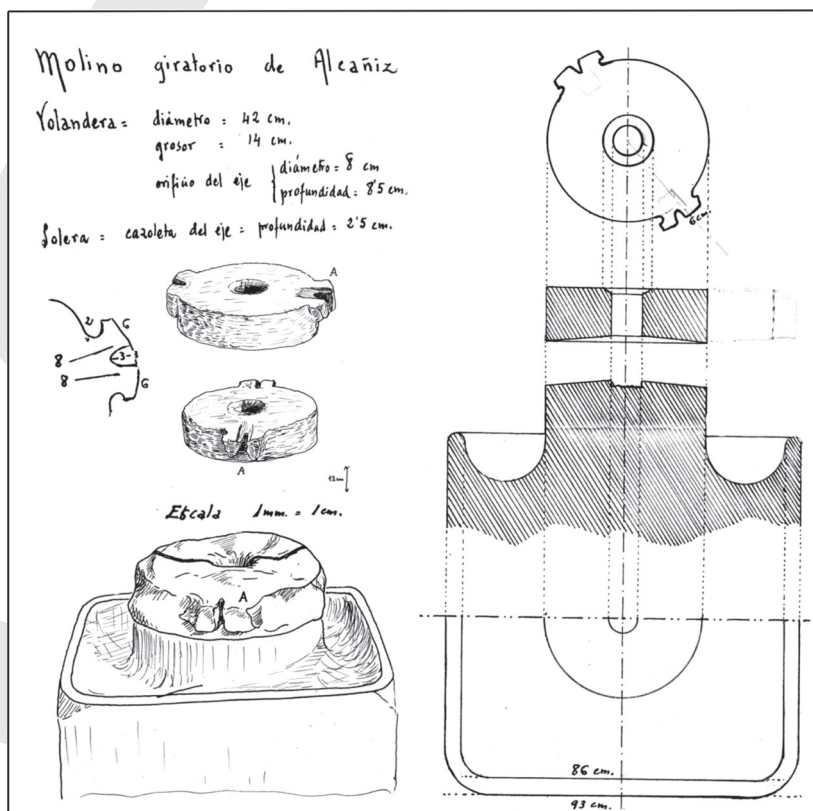 Molino giratorio de Alcañiz
Volandera = diámetro = 42 cm.
grosor = 14 cm.
orificio del eje { diámetro = 8 cm
profundidad = 8'5 cm.
Solera = cazoleta del eje = profundidad = 2'5 cm.
6 cm.
A
2 6
8 3
8 6
A
12cm
Escala 1mm. = 1cm.
A
86 cm.
93 cm.